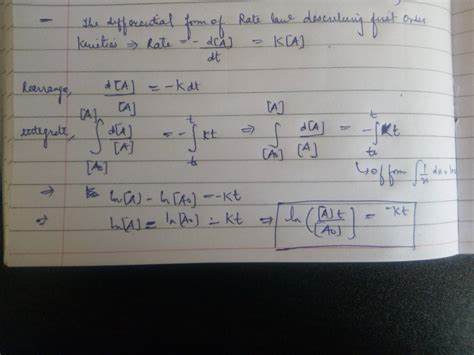 - The differential form of Rate law describing first order
kinetics ⇒ Rate = - d[A]/dt = K[A]
Rearrange, d[A]/[A] = -K dt
integrate, ∫ [A₀] [A] d[A]/[A] = - ∫ t₀ t Kt ⇒ ∫ [A₀] [A] d[A]/[A] = - ∫ t₀ t Kt
↳ of form ∫ 1/x dx =
⇒ ln[A] - ln[A₀] = -Kt
⇒ ln[A] = ln[A₀] - Kt ⇒ ln([A]t/[A₀]] = -Kt